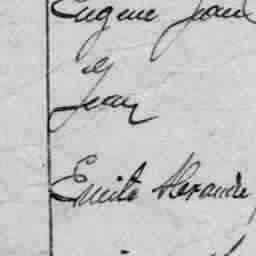 Eugène Jean
Jean
Emile Alexandre